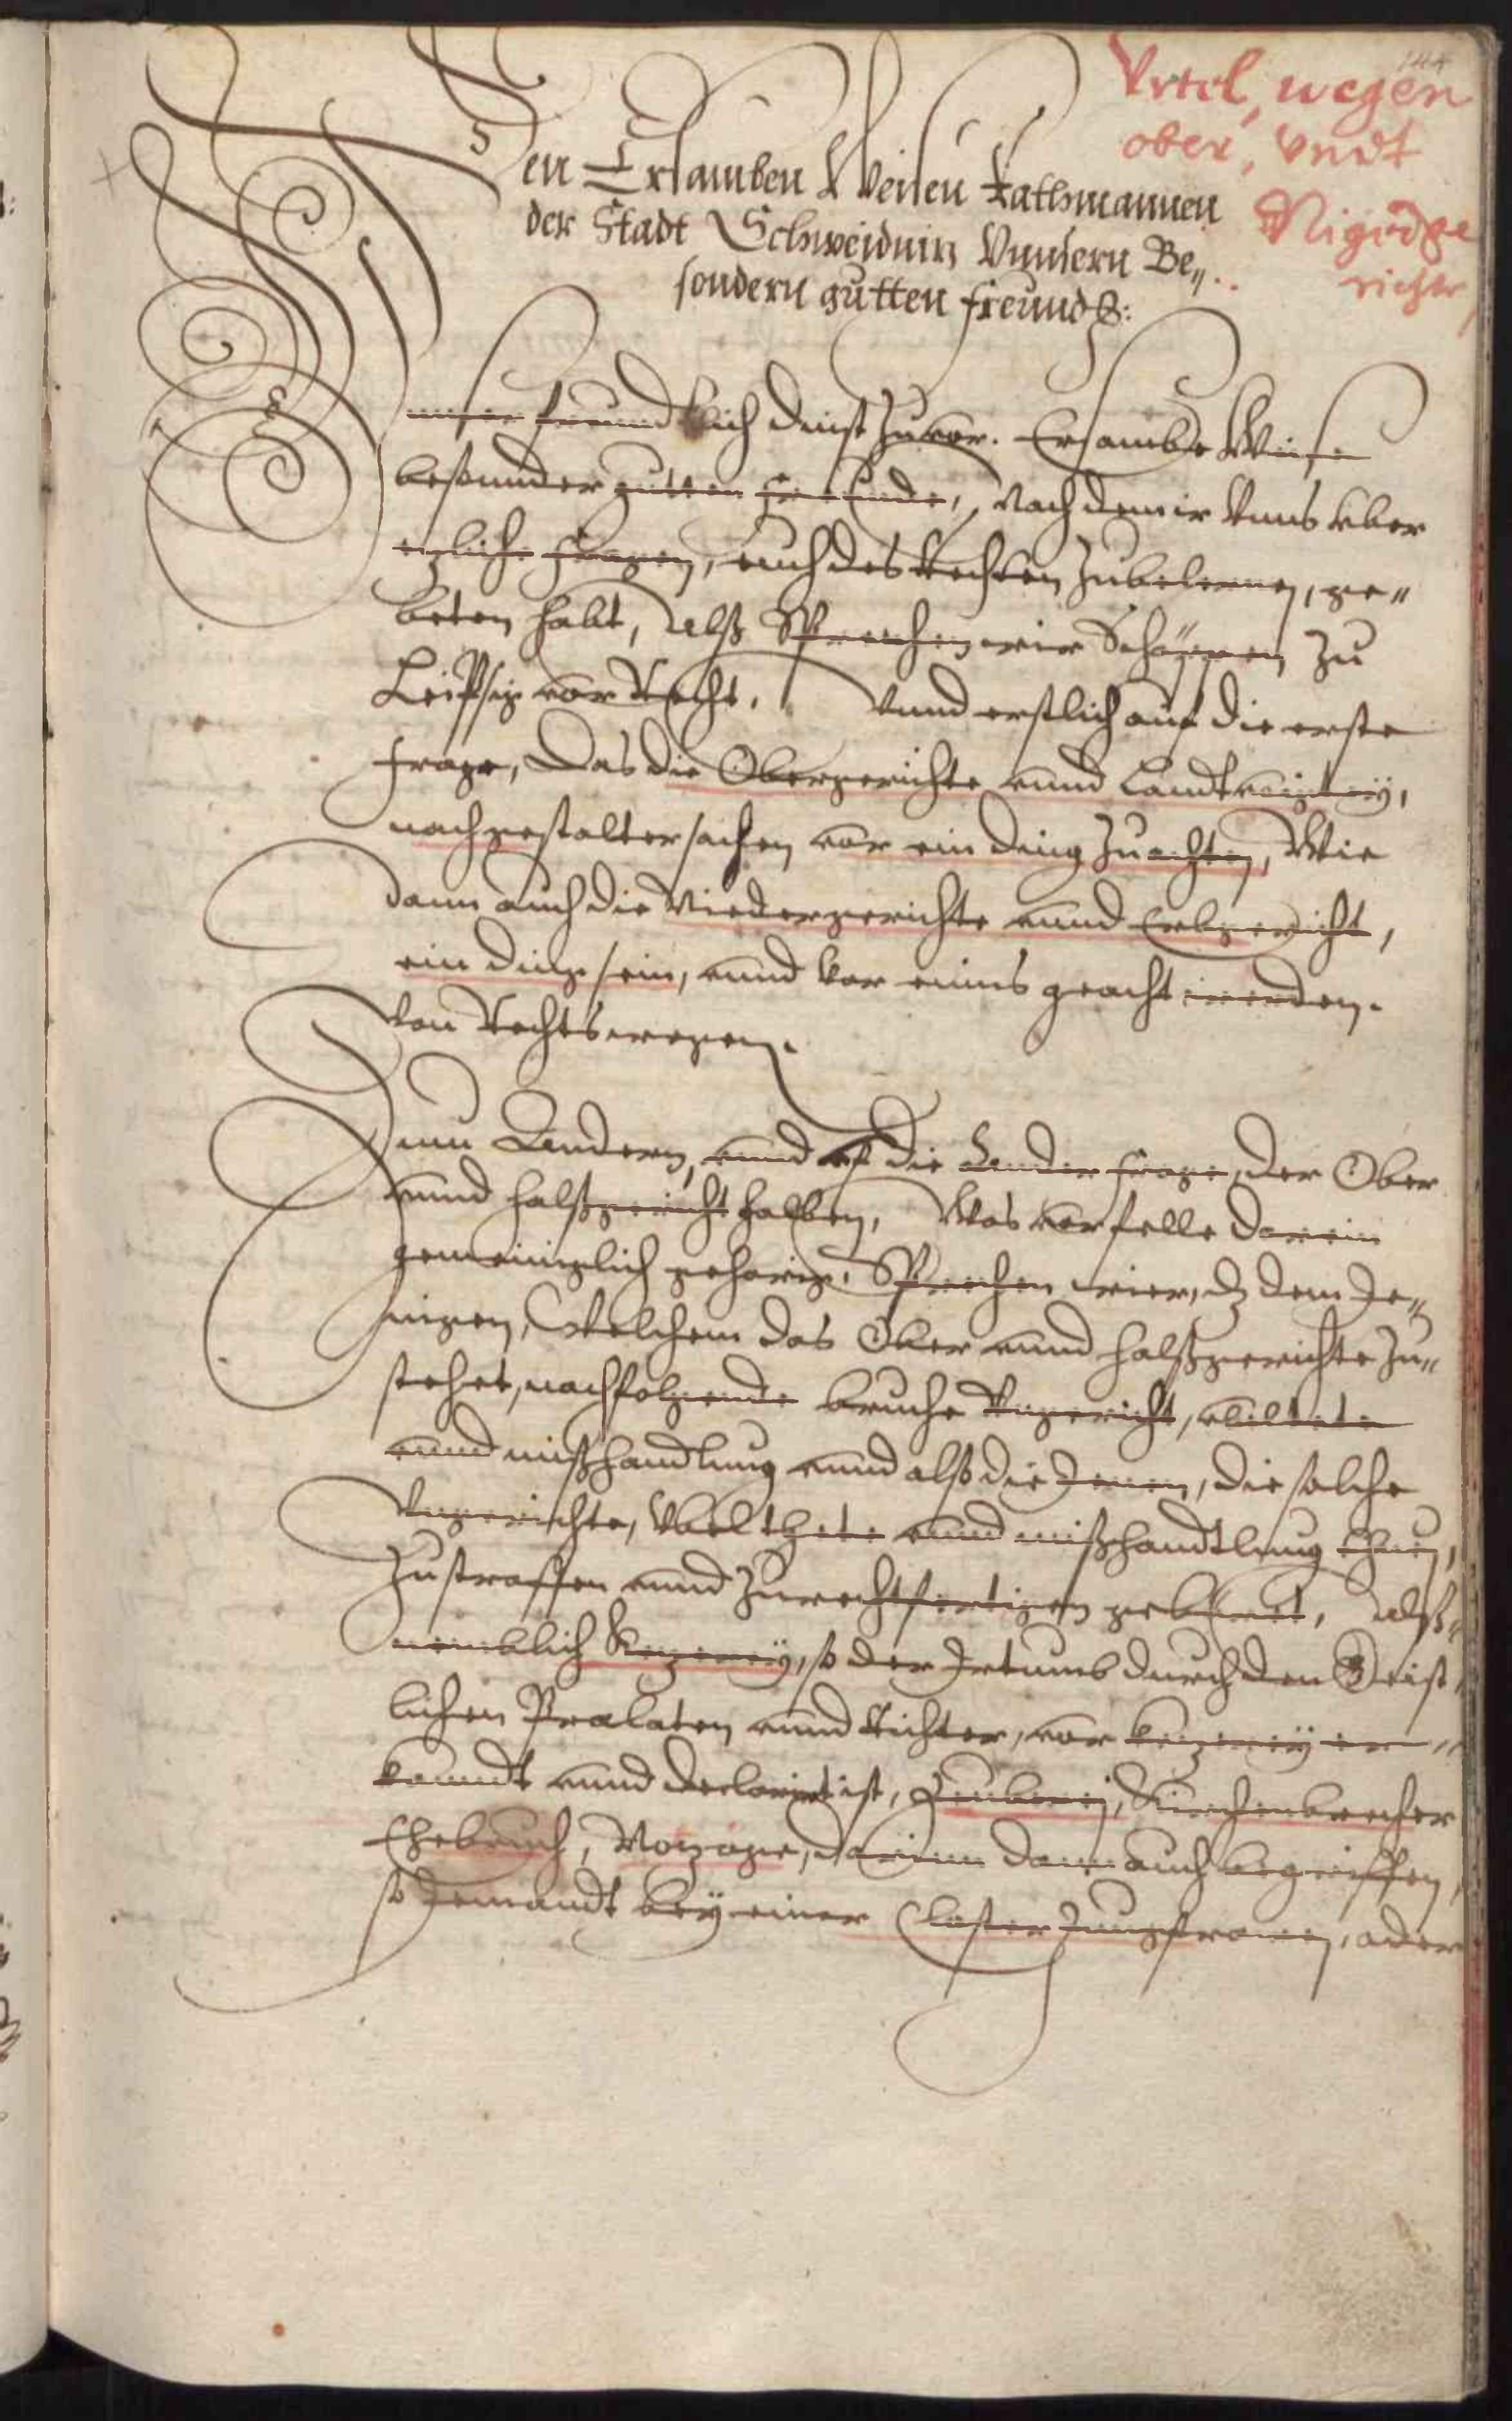 Urtel, wegen
ober, Vndt
Nigidge
richte,
Den Ersamben Weisen Rathmannen
der Stadt Schweidnitz Vnnsern Be„
sondern gutten freundē:
Vnser freundtlich dinst zuuor. Ersambe Weise
besonnder gutten freunde, Nach dem ir Vnns vber
etzliche fragen, euch des Rechten zubelernen, ge„
beten habt, Alß Sprechen wir Schöppen zu
Leipzig vor Recht. Vnnd erstlich auf die erste
frage, Das die Obergerichte vnnd Landtvoigtey,
nach gestalter sachen vor ein ding zuachten, Wie
dann auch die Niedergerichte vnnd Erbgericht,
ein ding sein, vnnd vor eines geacht werden.
Von Rechtswegen.
Zum Andern, vnnd vf die Ander frage, der Ober
vnnd halßgericht halben, Was vor felle darein
gemeiniglich gehörig. Sprechen wier, dz dem Je„
nigen, Welchem das Ober vnnd halßgerichte zu„
stehet, nachfolgende bruche Vngericht, vbeltate
vnnd mißhandlung vnnd also die Jenen, die solche
Vngerichte, Vbelthate vnnd mißhandtlung thun,
zustraffen vnnd zurechtfertigen gebüret, Alß„
nemblich Ketzerey, so der Irtumb durch den Geist„
lichen Prælaten vnnd Richter, vor ketzerey er„
kanndt vnnd declarirt ist, Zeuberey, Kirchenbrecher
Ehebruch, Notzoge, darinn dann auch begriffen,
so Jemandt bey einer Closter Jungfrawen, oder